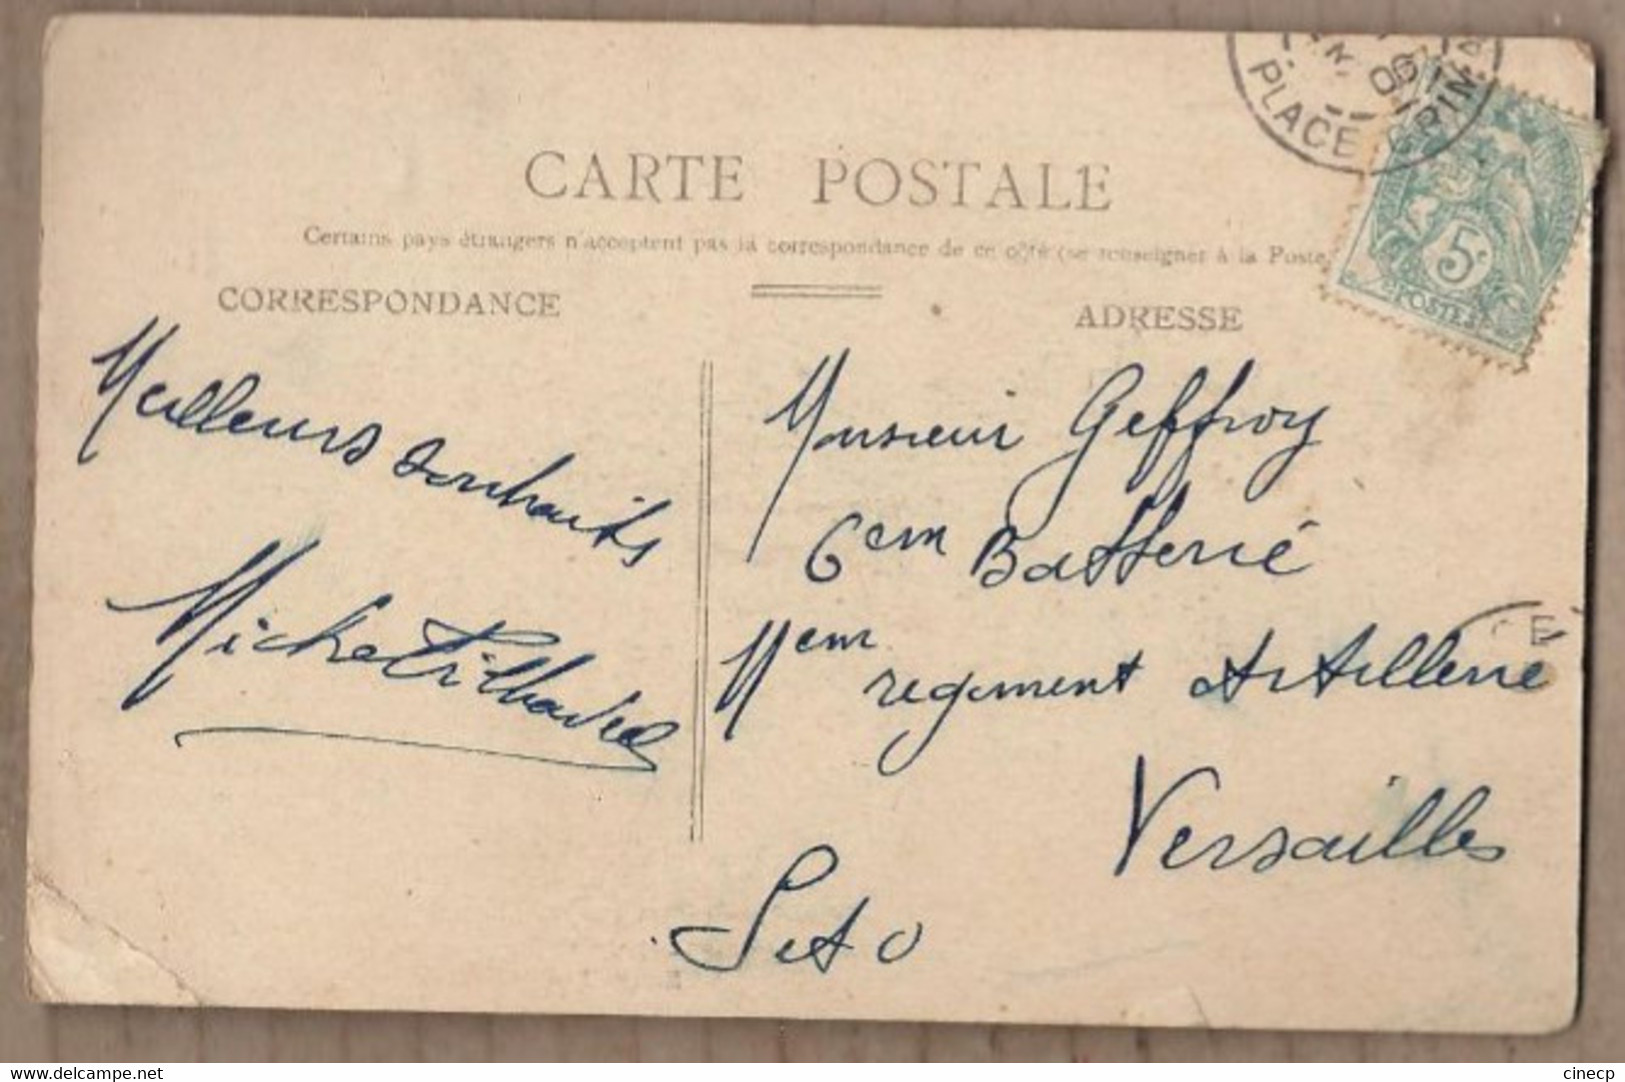 CARTE POSTALE
Certains pays étrangers n'acceptent pas la correspondance de ce côté (se renseigner à la Poste
CORRESPONDANCE
ADRESSE
PLACE
06
5c
POSTES
Meilleurs souhaits
Monsieur Geffroy
6em Batterie
11em regiment Artillerie
Versailles
S et O
E
www.delcampe.net
cinecp